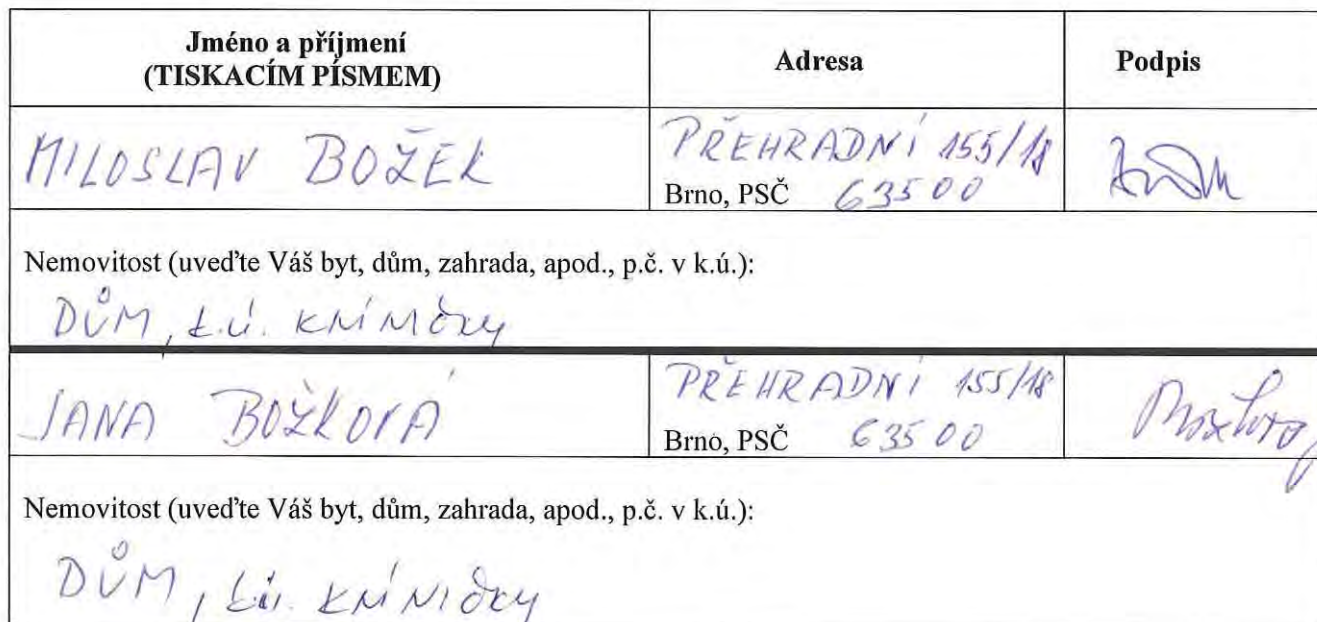 Jméno a příjmení
(TISKACÍM PÍSMEM)
Adresa
Podpis
MILOSLAV BOŽEK
PŘEHRADNÍ 155/18
Brno, PSČ 63500
Nemovitost (uveďte Váš byt, dům, zahrada, apod., p.č. v k.ú.):
DŮM, k.ú. KNÍNIČKY
JANA BOŽKOVÁ
PŘEHRADNÍ 155/18
Brno, PSČ 63500
Božková
Nemovitost (uveďte Váš byt, dům, zahrada, apod., p.č. v k.ú.):
DŮM, k.ú. KNÍNIČKY